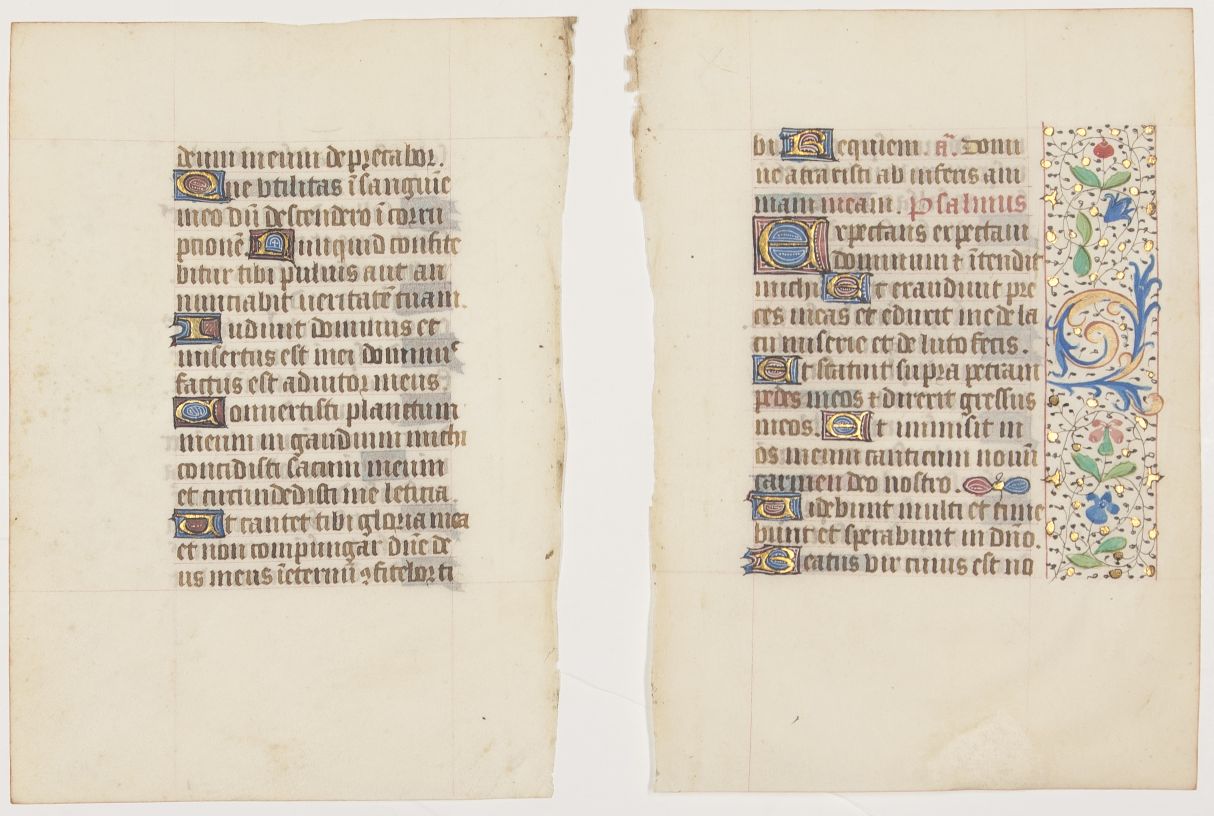 deum meum deprecabor.
Que vtilitas ĩ sanguĩe
meo dũ descendero ĩ corru
ptionẽ Nunquid confite
bitur tibi puluis aut an
nunciabit ueritatẽ tuam.
Audiuit dominus et
misertus est mei dominus
factus est adiutor meus.
Conuertisti planctum
meum in gaudium michi
concidisti saccum meum
et circundedisti me leticia.
Ut cantet tibi gloria mea
et non compungar dñe de
us meus ĩ eternũ ꝯfitebor ti
bi Requiem. añ. Domi
ne abstraxisti ab inferis ani
mam meam. Psalmus
Expectans expectaui
dominum ⁊ ĩtendit
michi Et exaudiuit pre
ces meas et eduxit me de la
cu miserie et de luto fecis.
Et statuit supra petram
pedes meos ⁊ direxit gressus
meos. Et immisit in
os meum canticum nouũ
carmen deo nostro.
Uidebunt multi et time
bunt et sperabunt in dño
Beatus vir cuius est no